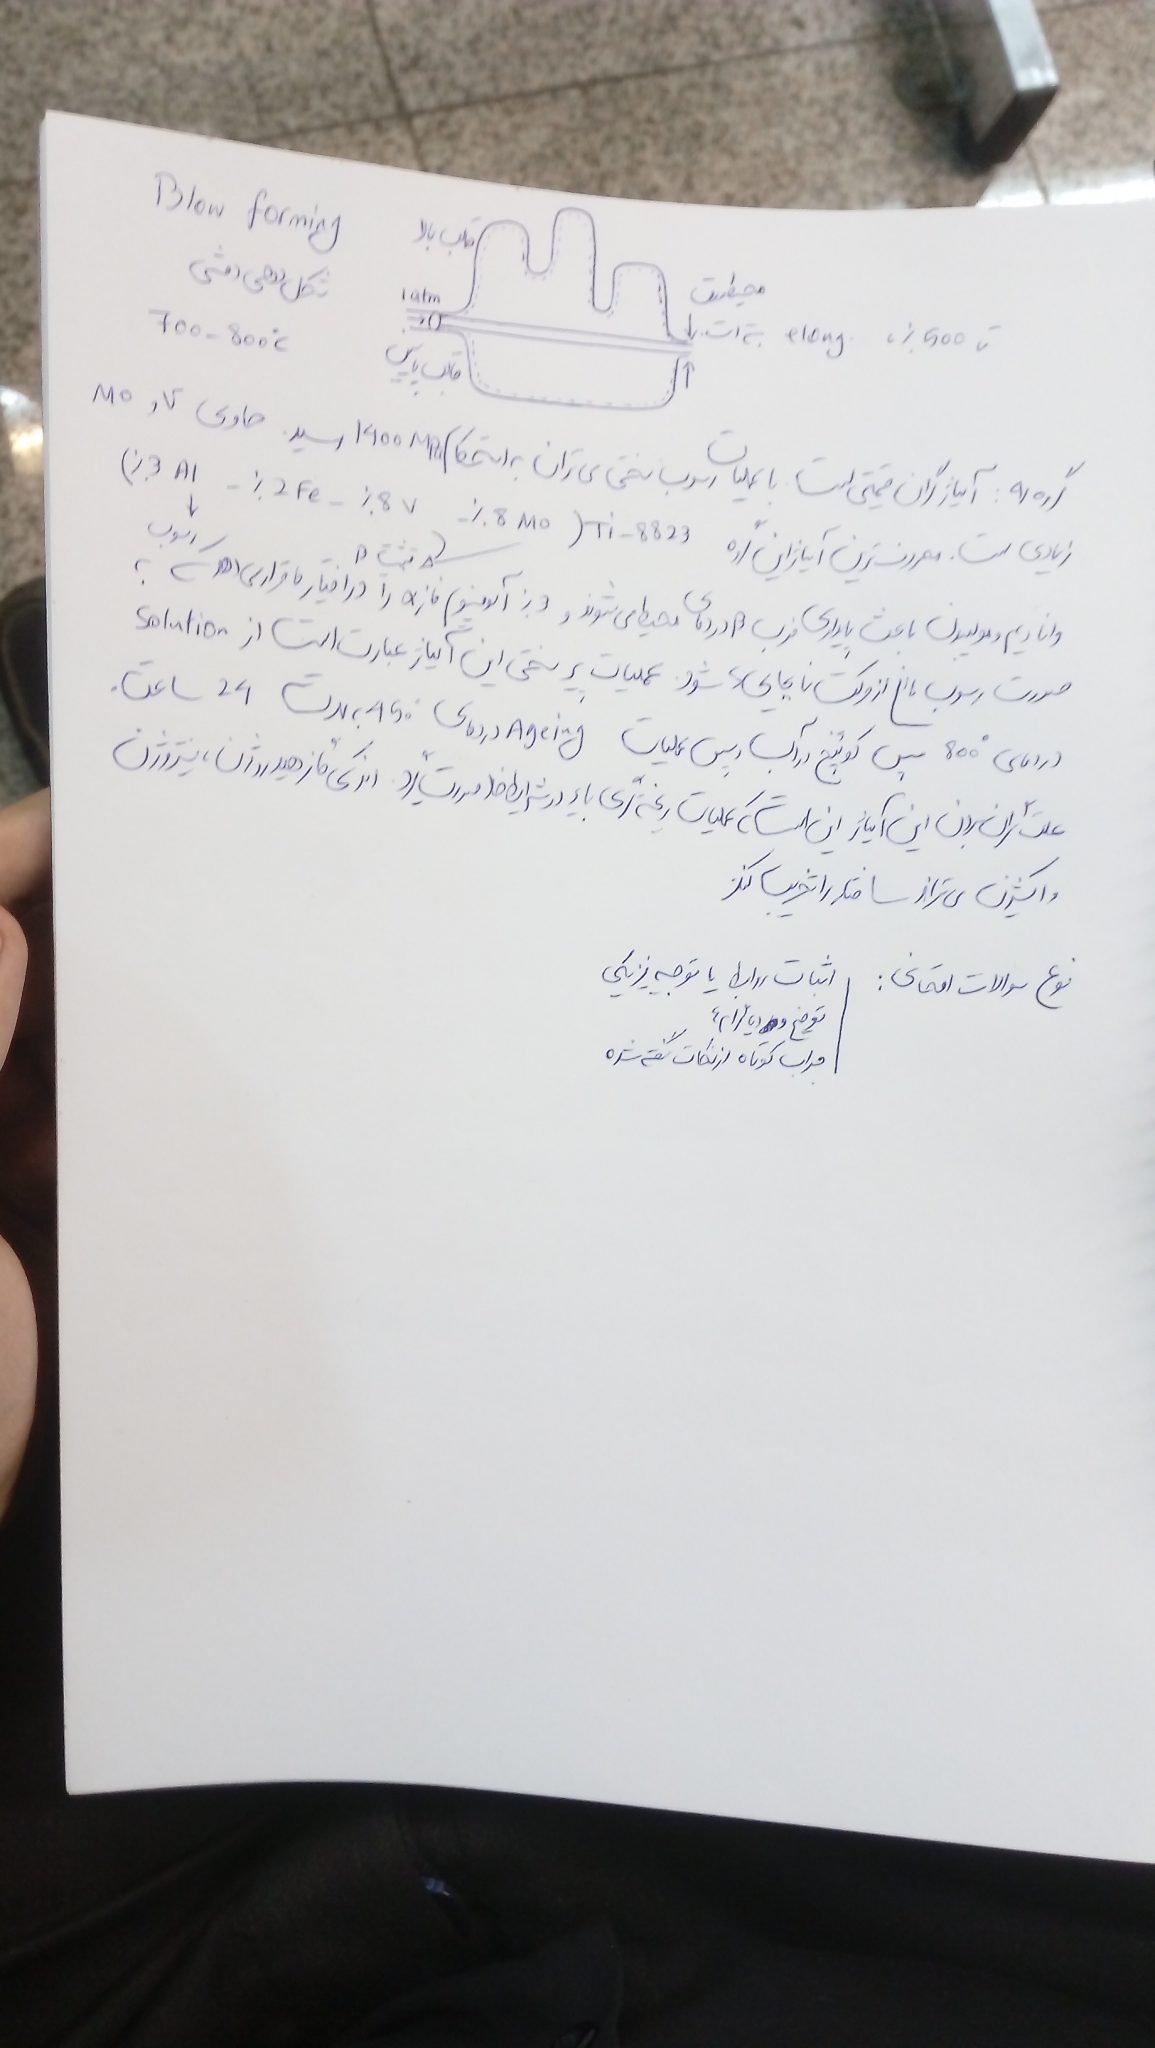 Blow forming
شکل دهی دمشی
700-800°C
قالب بالا
1 atm
قالب پایین
محیط
تا 500٪ elong.
گروه β: آلیاژ گران قیمتی است. با عملیات رسوب سختی می توان به استحکام 1400 MPa رسید. حاوی V و Mo
زیادی است. معروف ترین آلیاژ این گروه Ti-8823 (٪8 Mo - ٪8 V - ٪2 Fe - ٪3 Al)
تثبیت β
رسوب
وانادیم و مولیبدن باعث پایداری فاز β در دمای محیط می شوند و ٪3 آلومینیوم فاز α را در اختیار ما قرار می دهد که به
صورت رسوب مانع از حرکت نابجایی ها شود. عملیات پیر سختی این آلیاژ عبارت است از Solution
در دمای 800° سپس کوئنچ در آب و سپس عملیات Ageing در دمای 450° به مدت 24 ساعت.
علت گران بودن این آلیاژ این است که عملیات ریخته گری باید در شرایط خلا صورت گیرد. اندکی گاز هیدروژن، نیتروژن
و اکسیژن می تواند ساختار را تخریب کند
نوع سوالات امتحانی:
اثبات روابط یا توجیه فیزیکی
توضیح
جواب کوتاه از نکات گفته شده